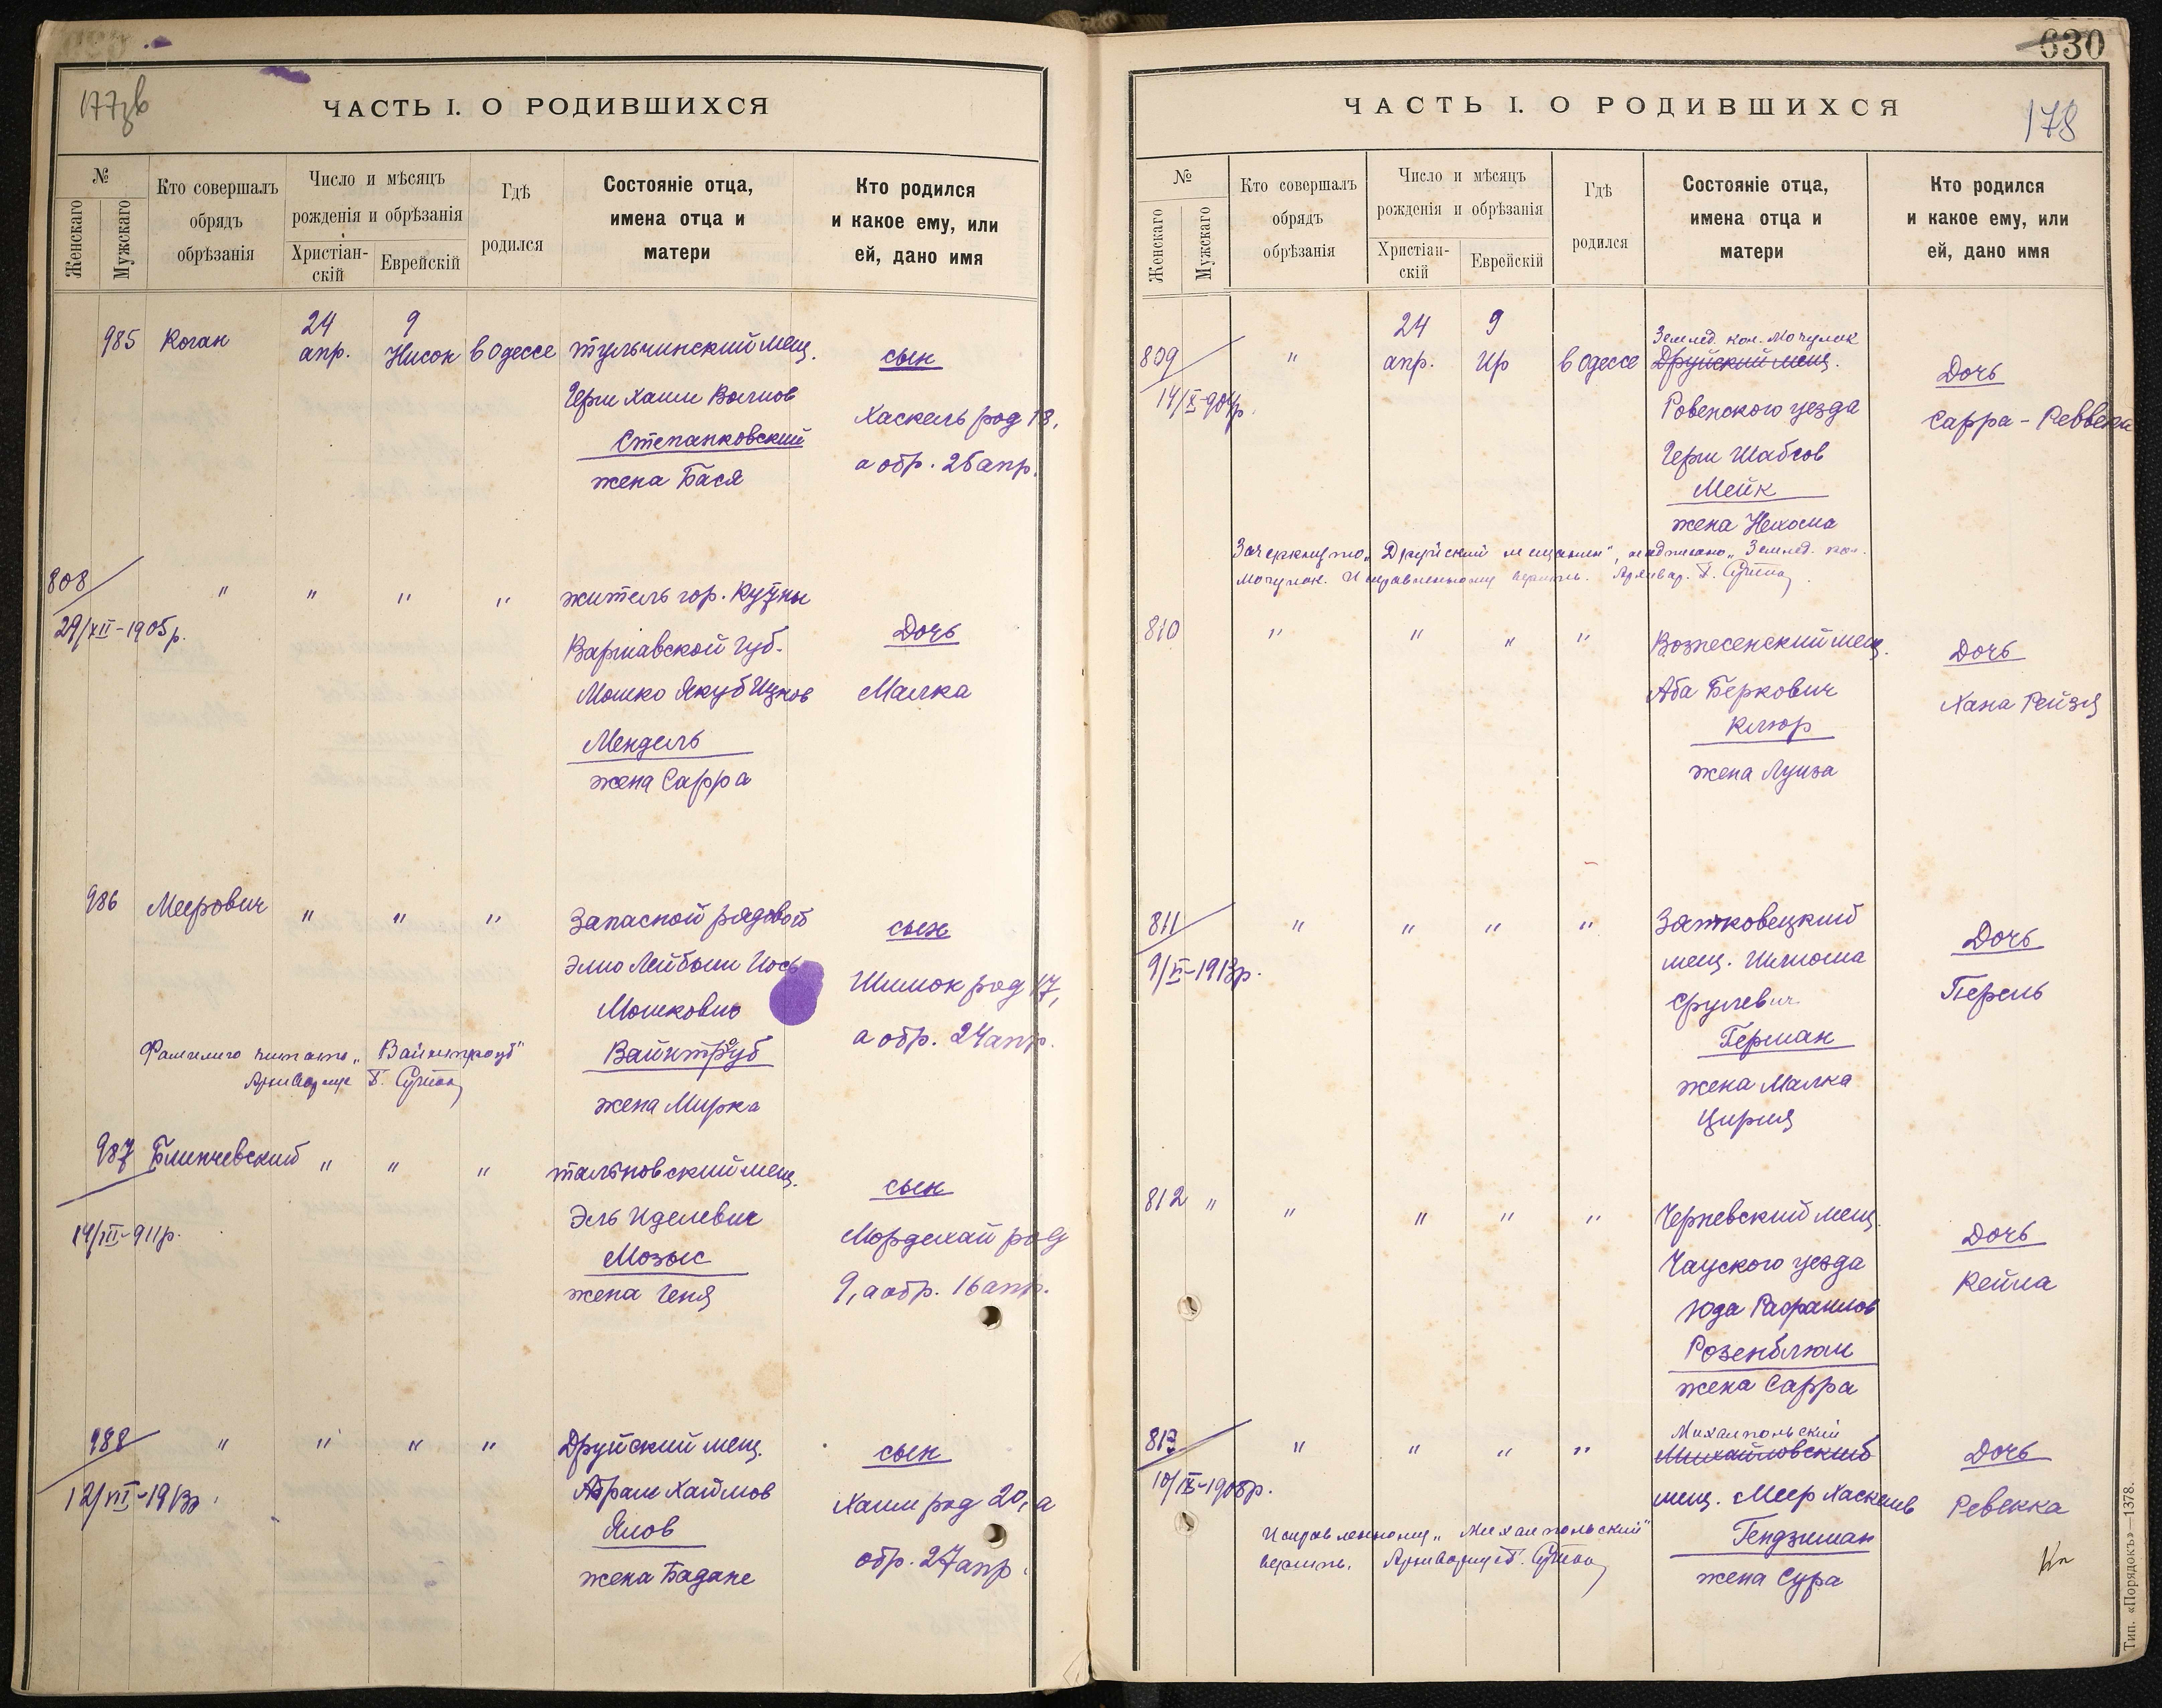 177зв
ЧАСТЬ I. О РОДИВШИХСЯ
№
Женскаго
Мужскаго
Кто совершалъ обрядъ обрѣзанія
Число и мѣсяцъ рожденія и обрѣзанія
Христіан-
скій
Еврейскій
Гдѣ родился
Состояніе отца,
имена отца и
матери
Кто родился
и какое ему, или
ей, дано имя
985 Коган 24 апр. 9 Нисон в Одессе тульчинский мещ. сын
Герш Хаим Волков
Степанковский
жена Бася
Хаскель род 18,
а обр. 25 апр.
808 " " " " житель гор. Кутны Дочь
29/XII-1905р.
Варшавской губ.
Мошко Якуб Ицков Малка
Мендель
жена Сарра
986 Меерович " " " Запасной рядовой сын
Элио Лейбыш Иось
Мошкович
Шимон род 17,
а обр. 24 апр.
Вайнтроуб
жена Мирка
Фамилию читать „Вайнтроуб"
Архивариус
987 Блинчевский " " " тальновский мещ. сын
14/XII-911р.
Эль Иделевич
Мозыс
жена Геня
Мордехай род
9, а обр. 16 апр.
988 " " " " Друйский мещ. сын
12/VII-1913р.
Абрам Хаимов
Ялов
жена Бадане
Хаим род 20, а
обр. 27 апр.
630
178
ЧАСТЬ I. О РОДИВШИХСЯ
№
Женскаго
Мужскаго
Кто совершалъ обрядъ обрѣзанія
Число и мѣсяцъ рожденія и обрѣзанія
Христіан-
скій
Еврейскій
Гдѣ родился
Состояніе отца,
имена отца и
матери
Кто родился
и какое ему, или
ей, дано имя
809 " 24 апр. 9 Ир в Одессе
14/X-904р.
Землед. кол. Мочулок
Друйский мещ.
Ровенского уезда
Герш Шабсов
Мейк
жена Нехома
Дочь
Сарра-Реввека
Зачеркнуто „Друйский мещанин", надписано „Землед. кол.
Мочулок. Исправленному верить. Архивар.
810 " " " " Вознесенский мещ. Дочь
Аба Беркович
Клюр
жена Луиза
Хана Рейзя
811 " " " "
9/VI-1913р.
Затковецкий
мещ. Шлиома
Срулевич
Герман
жена Малка
Цирия
Дочь
Перель
812 " " " " " Черневский мещ. Дочь
Чауского уезда
Юда Рафаилов
Розенблюм
жена Сарра
Кейла
813 " " " "
10/IX-1908р.
Михалпольский
Михайловский
мещ. Меер Хаскелев
Гендзиман
жена Сура
Дочь
Ревекка
Исправленному „Михалпольский"
верить. Архивариус
Тип. «Порядокъ»—1378.